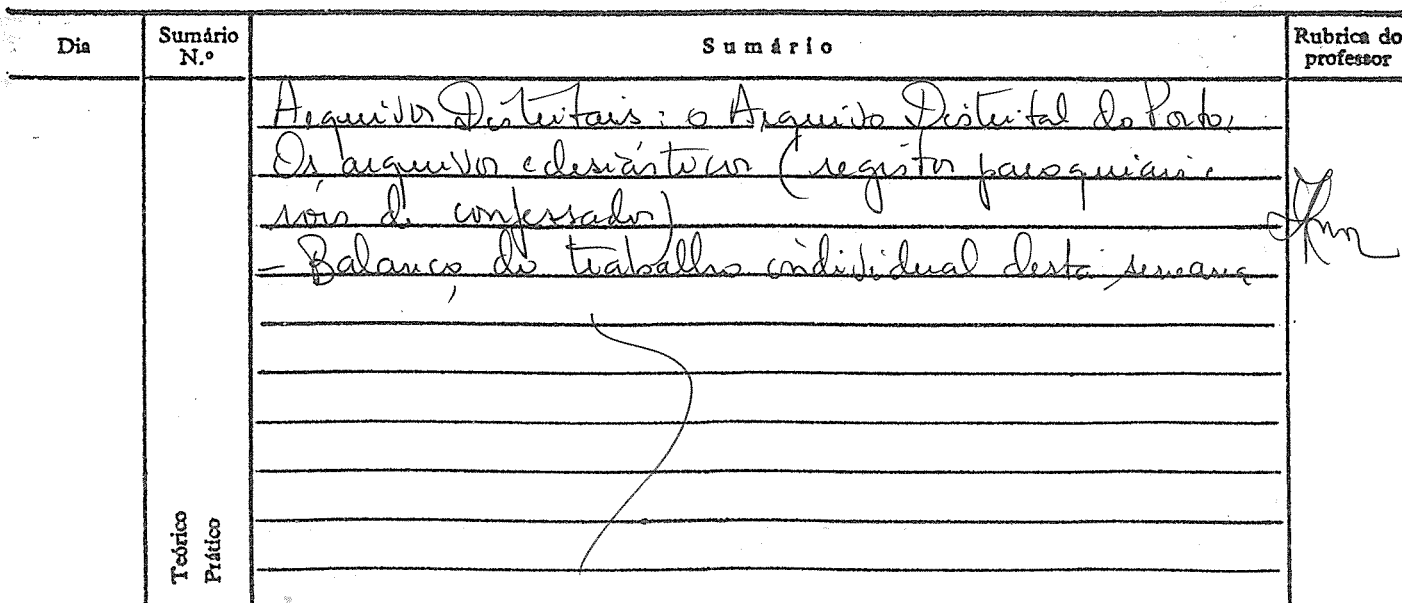 Dia
Sumário N.º
Sumário
Rubrica do professor
Arquivos Distritais: o Arquivo Distrital do Porto.
Os arquivos eclesiásticos (registos paroquiais e
róis de confessados)
- Balanço do trabalho individual desta semana
Teórico
Prático